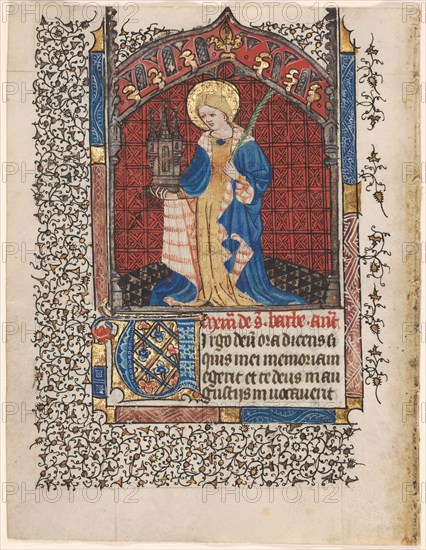 de s. barbe. ant
irgo deū ora ducens si
quis mei memoriam
egerit et te deus in an
gustijs invocaverit